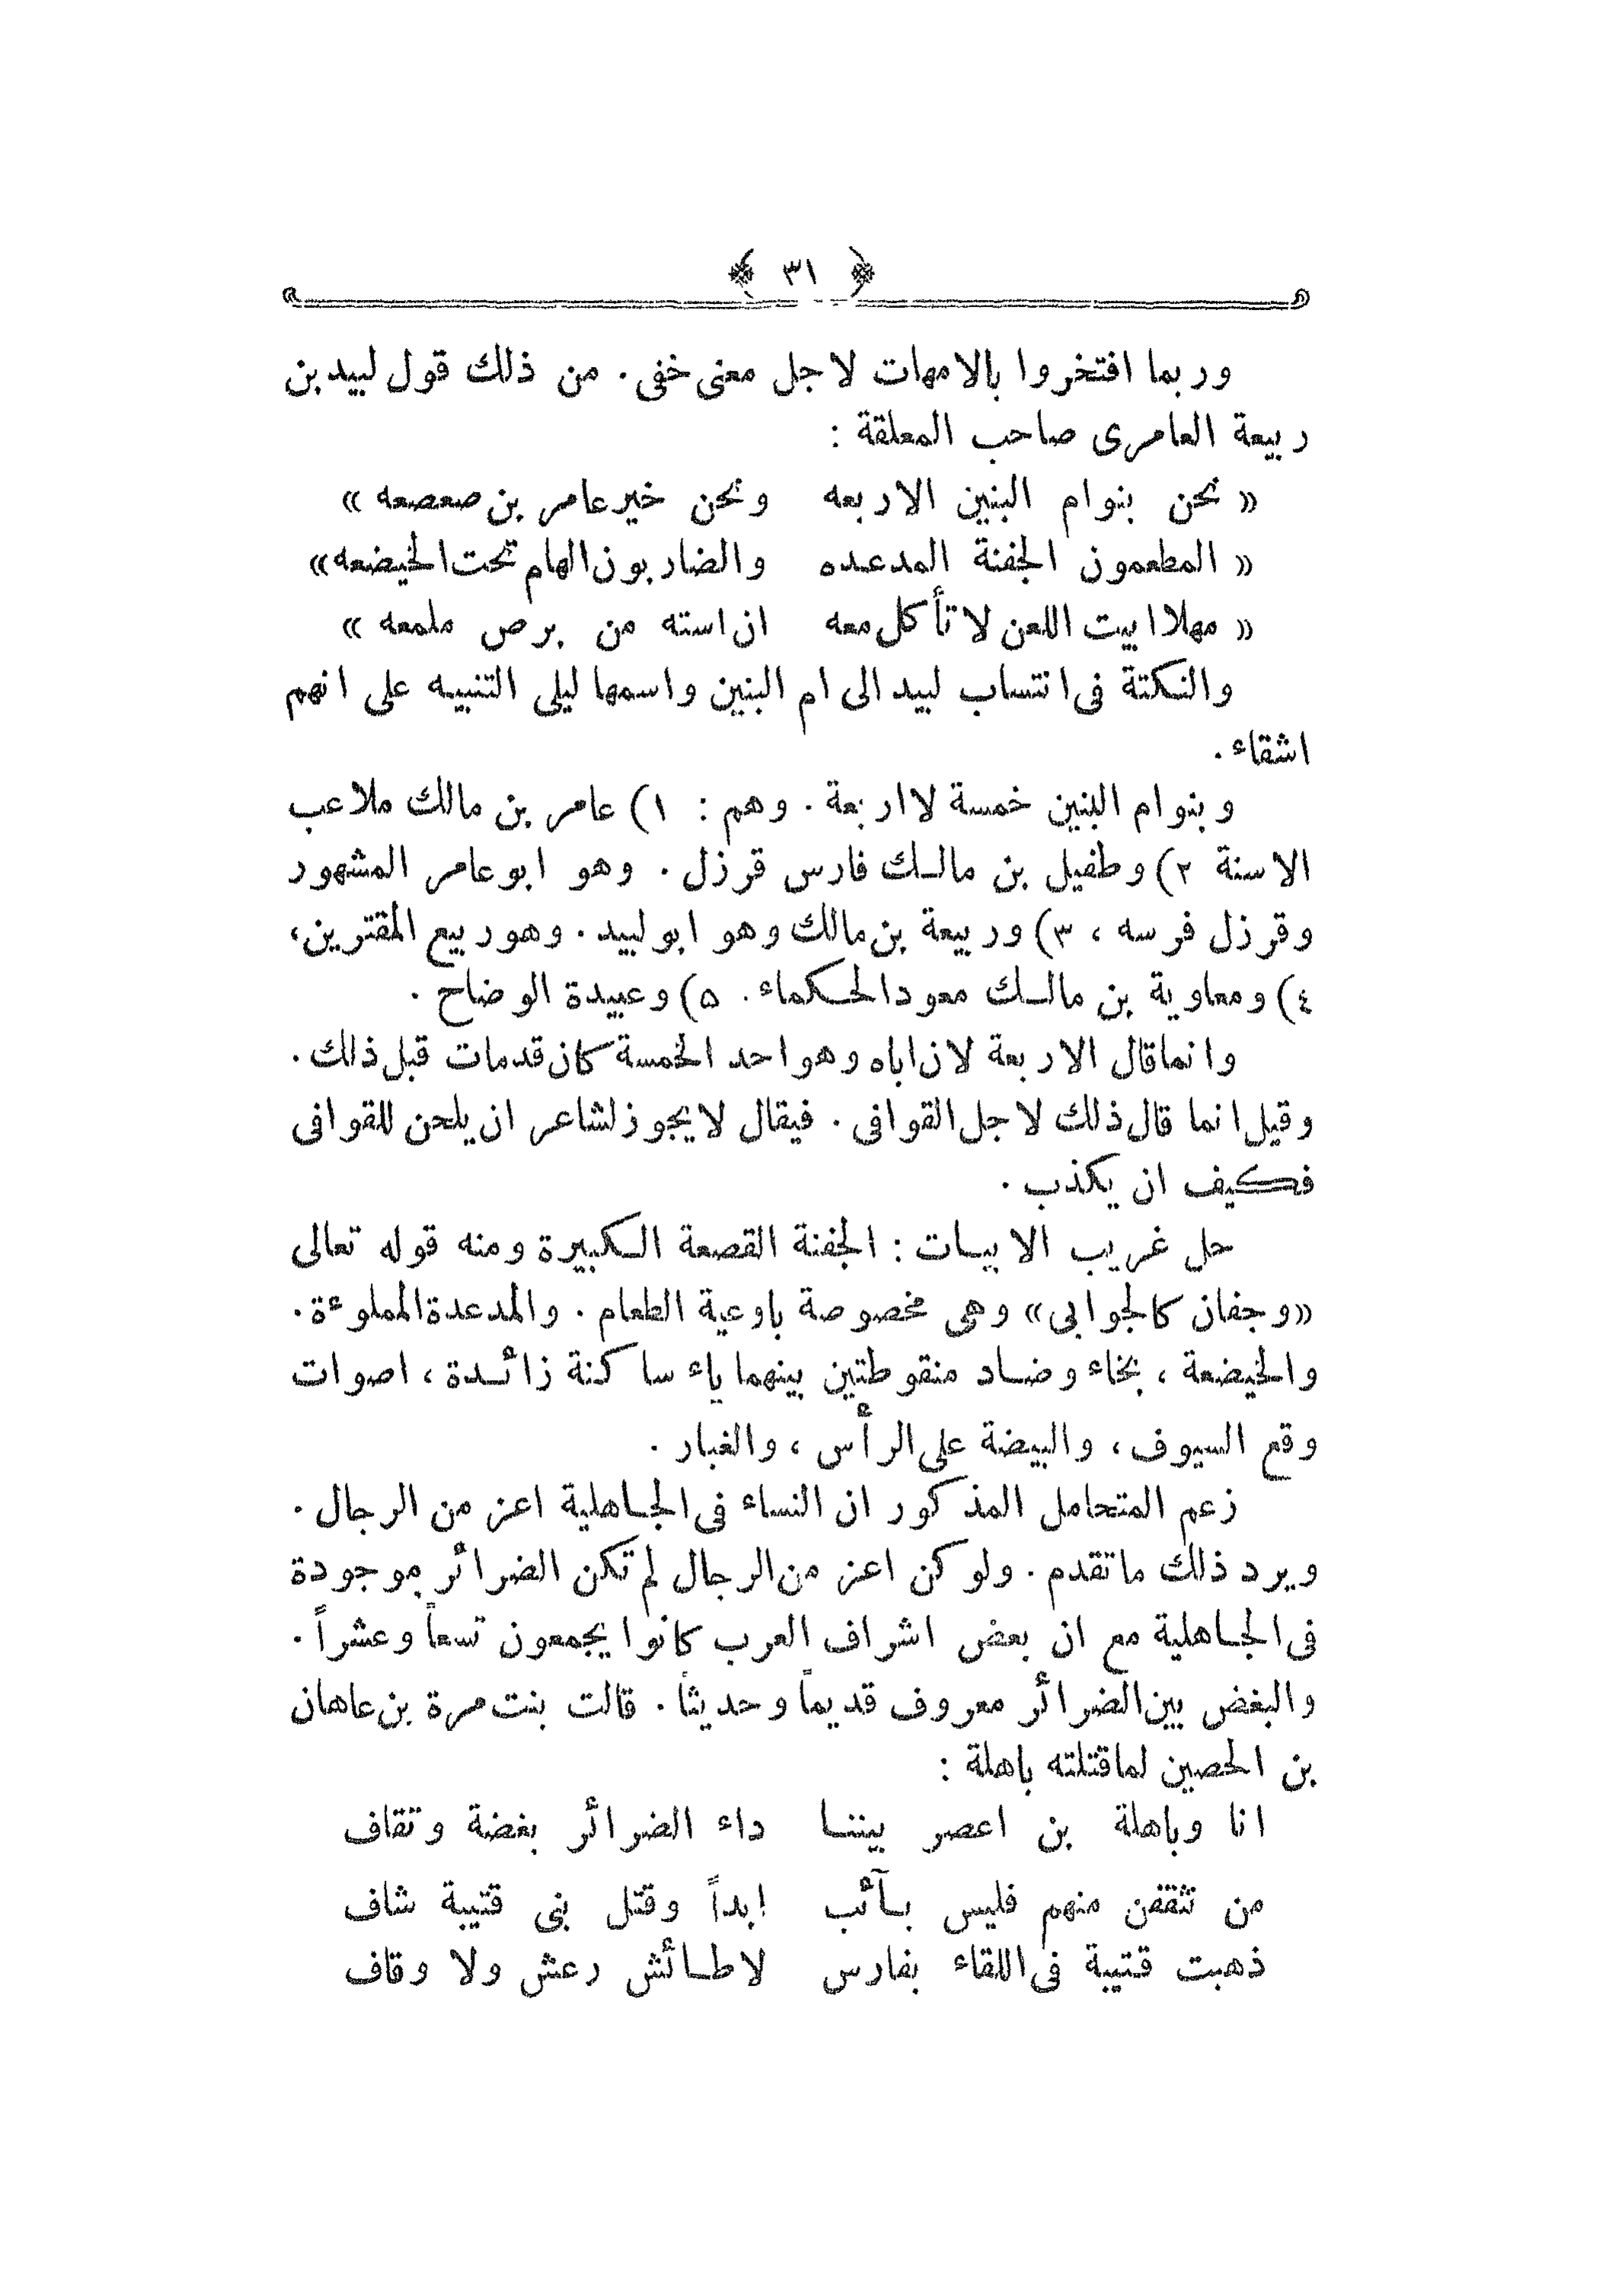 ﴿ ٣١ ﴾
وربما افتخروا بالامهات لاجل معنى خفى. من ذلك قول لبيد بن
ربيعة العامرى صاحب المعلقة :
« نحن بنوام البنين الاربعه ونحن خير عامر بن صعصعه »
« المطعمون الجفنة المدعده والضاربون الهام تحت الخيضعه»
« مهلا ابيت اللعن لا تأكل معه ان استه من برص ملمعه »
والنكتة فى انتساب لبيد الى ام البنين واسمها ليلى التنبيه على انهم
اشقاء.
وبنوام البنين خمسة لا اربعة. وهم : ١) عامر بن مالك ملاعب
الاسنة ٢) وطفيل بن مالك فارس قرزل. وهو ابو عامر المشهور
وقرزل فرسه ، ٣) وربيعة بن مالك وهو ابو لبيد. وهو ربيع المقترين،
٤) ومعاوية بن مالك معود الحكماء. ٥) وعبيدة الوضاح.
وانما قال الاربعة لان اباه وهو احد الخمسة كان قدمات قبل ذلك.
وقيل انما قال ذلك لاجل القوافى. فيقال لا يجوز لشاعر ان يلحن للقوافى
فكيف ان يكذب.
حل غريب الابيات : الجفنة القصعة الكبيرة ومنه قوله تعالى
«وجفان كالجوابى» وهى مخصوصة باوعية الطعام. والمدعدة المملوءة.
والخيضعة ، بخاء وضاد منقوطتين بينهما ياء ساكنة زائدة ، اصوات
وقع السيوف ، والبيضة على الرأس ، والغبار.
زعم المتحامل المذكور ان النساء فى الجاهلية اعز من الرجال.
ويرد ذلك ماتقدم. ولو كن اعز من الرجال لم تكن الضرائر موجودة
فى الجاهلية مع ان بعض اشراف العرب كانوا يجمعون تسعاً وعشراً.
والبغض بين الضرائر معروف قديماً وحديثاً. قالت بنت مرة بن عاهان
بن الحصين لماقتلته باهلة :
انا وباهلة بن اعصر بيننا داء الضرائر بغضة وتقاف
من تثقفن منهم فليس بآئب ابداً وقتل بنى قتيبة شاف
ذهبت قتيبة فى اللقاء بفارس لا طائش رعش ولا وقاف